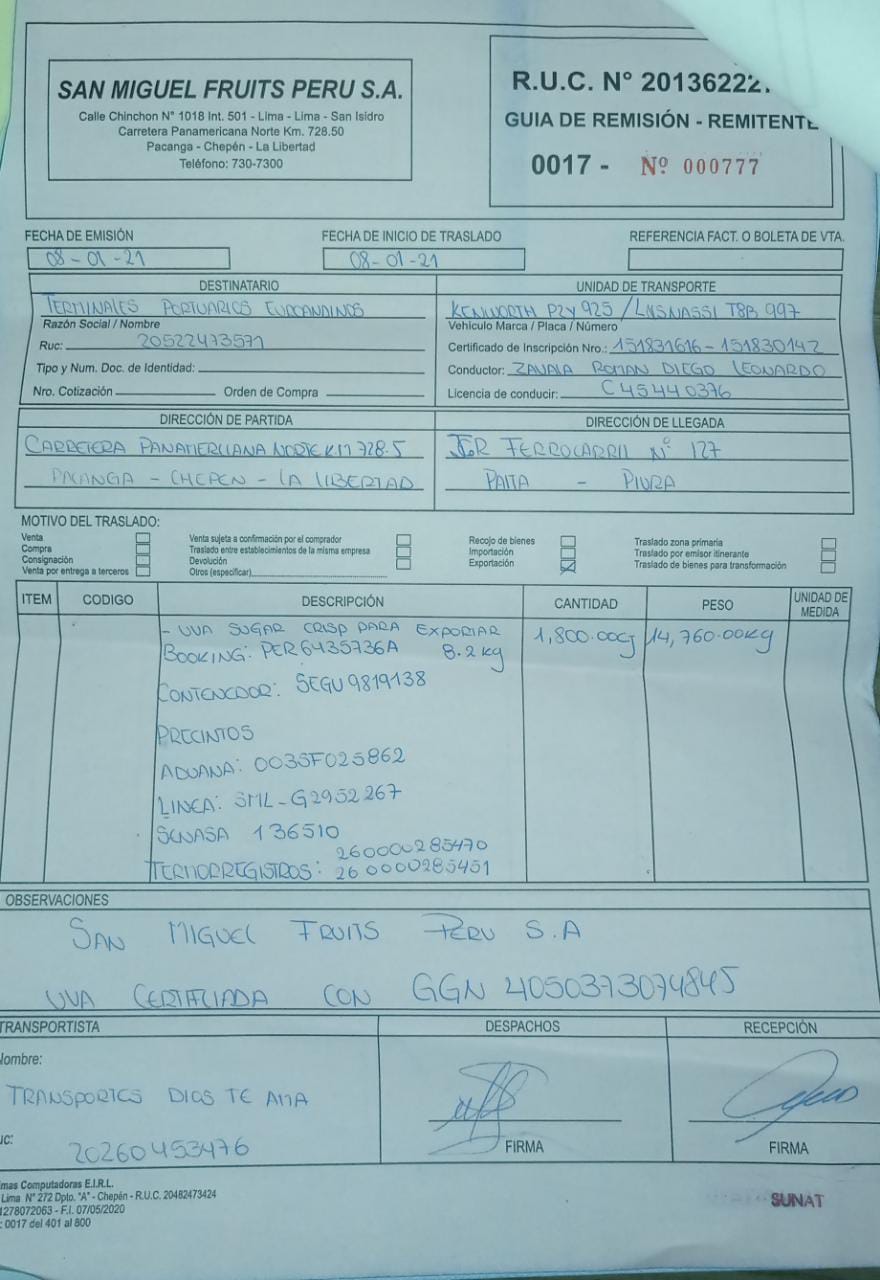 SAN MIGUEL FRUITS PERU S.A.
Calle Chinchon N° 1018 Int. 501 - Lima - Lima - San Isidro
Carretera Panamericana Norte Km. 728.50
Pacanga - Chepén - La Libertad
Teléfono: 730-7300
R.U.C. N° 20136222
GUIA DE REMISIÓN - REMITENTE
0017 - Nº 000777
FECHA DE EMISIÓN
08-01-21
FECHA DE INICIO DE TRASLADO
08-01-21
REFERENCIA FACT. O BOLETA DE VTA.
DESTINATARIO
TERMINALES PORTUARIOS EUROANDINOS
Razón Social / Nombre
Ruc: 20522473571
Tipo y Num. Doc. de Identidad:
Nro. Cotización Orden de Compra
UNIDAD DE TRANSPORTE
KENWORTH P2Y 925 / T8B 997
Vehículo Marca / Placa / Número
Certificado de Inscripción Nro.: 151831616 - 151830142
Conductor: ZAVALA ROMAN DIEGO LEONARDO
Licencia de conducir: C45440376
DIRECCIÓN DE PARTIDA
CARRETERA PANAMERICANA NORTE KM 728.5
PACANGA - CHEPEN - LA LIBERTAD
DIRECCIÓN DE LLEGADA
JR FERROCARRIL N° 127
PAITA - PIURA
MOTIVO DEL TRASLADO:
Venta
Compra
Consignación
Venta por entrega a terceros
Venta sujeta a confirmación por el comprador
Traslado entre establecimientos de la misma empresa
Devolución
Otros (especificar)
Recojo de bienes
Importación
Exportación
Traslado zona primaria
Traslado por emisor itinerante
Traslado de bienes para transformación
ITEM CODIGO DESCRIPCIÓN CANTIDAD PESO UNIDAD DE MEDIDA
- UVA SUGAR CRISP PARA EXPORTAR 1,800.00CJ 14,760.00KG
BOOKING: PER6435736A 8.2 kg
CONTENEDOR: SEGU9819138
PRECINTOS
ADUANA: 003SF025862
LINEA: SML-G2952267
SENASA 136510
260000285470
TERMORREGISTROS: 260000285451
OBSERVACIONES
SAN MIGUEL FRUITS PERU S.A
UVA CERTIFICADA CON GGN 4050373074845
TRANSPORTISTA
Nombre:
TRANSPORTES DIOS TE AMA
20260453476
DESPACHOS
FIRMA
RECEPCIÓN
FIRMA
mas Computadoras E.I.R.L.
Lima N° 272 Dpto. "A" - Chepén - R.U.C. 20482473424
1278072063 - F.I. 07/05/2020
: 0017 del 401 al 800
SUNAT